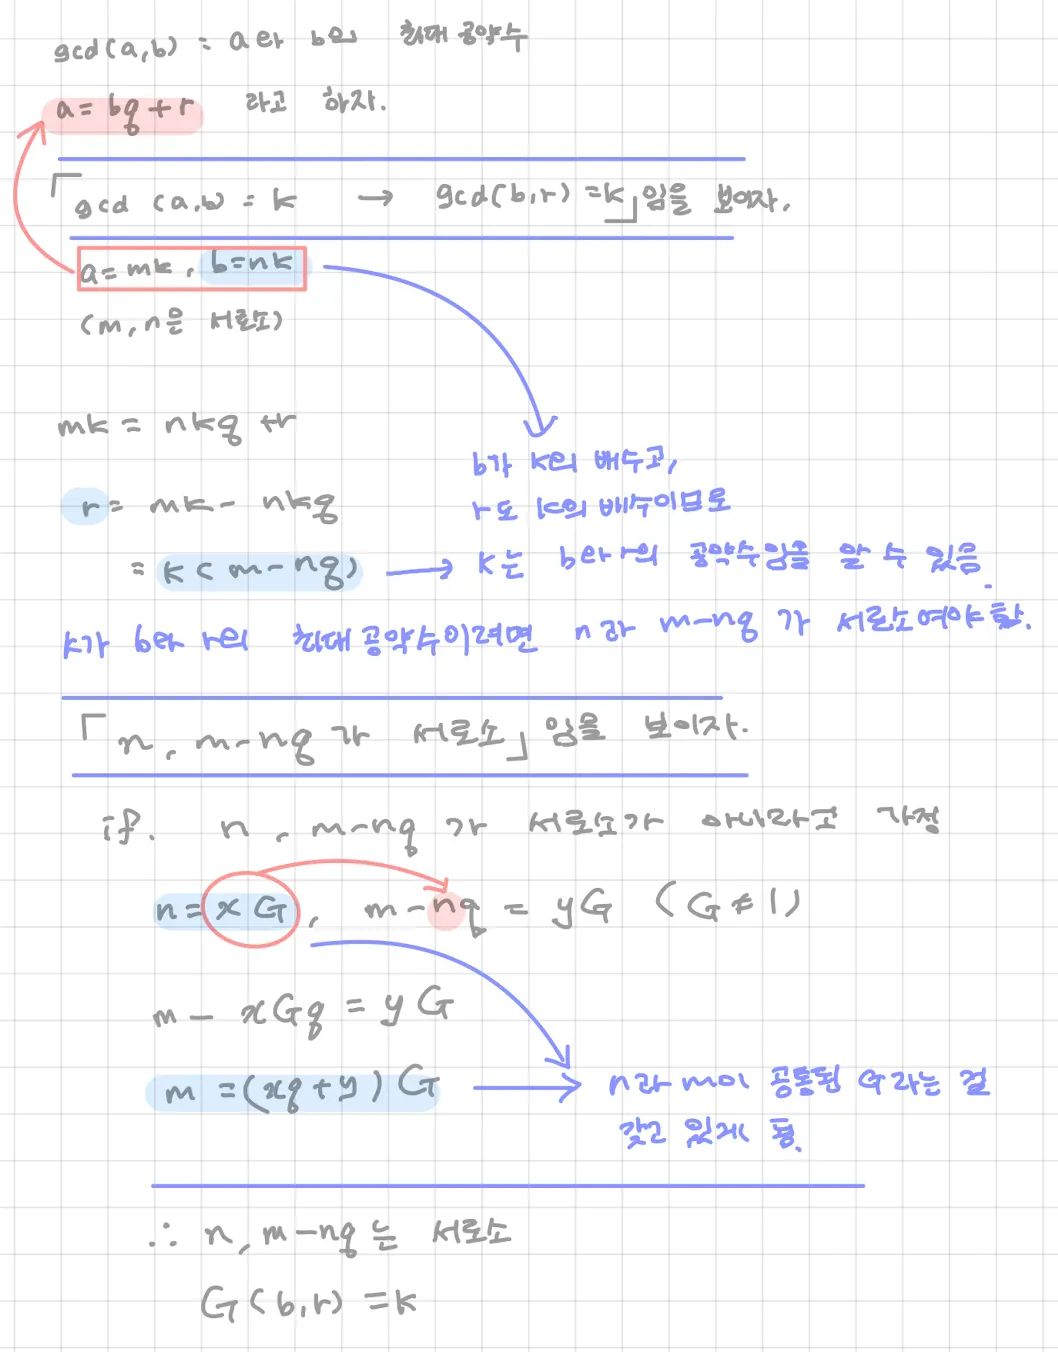 gcd(a,b) : a와 b의 최대공약수
a = bq + r 라고 하자.
「gcd (a,b) = k → gcd(b,r) = k」임을 보이자.
a = mk, b = nk
(m, n은 서로소)
mk = nkq + r
b가 k의 배수고,
r = mk - nkq
r도 k의 배수이므로
= k(m-nq) → k는 b와 r의 공약수임을 알 수 있음.
k가 b와 r의 최대공약수이려면 n과 m-nq가 서로소여야 함.
「n, m-nq가 서로소」임을 보이자.
if. n, m-nq가 서로소가 아니라고 가정
n = xG, m-nq = yG (G≠1)
m - xGq = yG
m = (xq+y)G → n과 m이 공통된 G라는 걸
갖고 있게 됨.
∴ n, m-nq는 서로소
G(b,r) = k